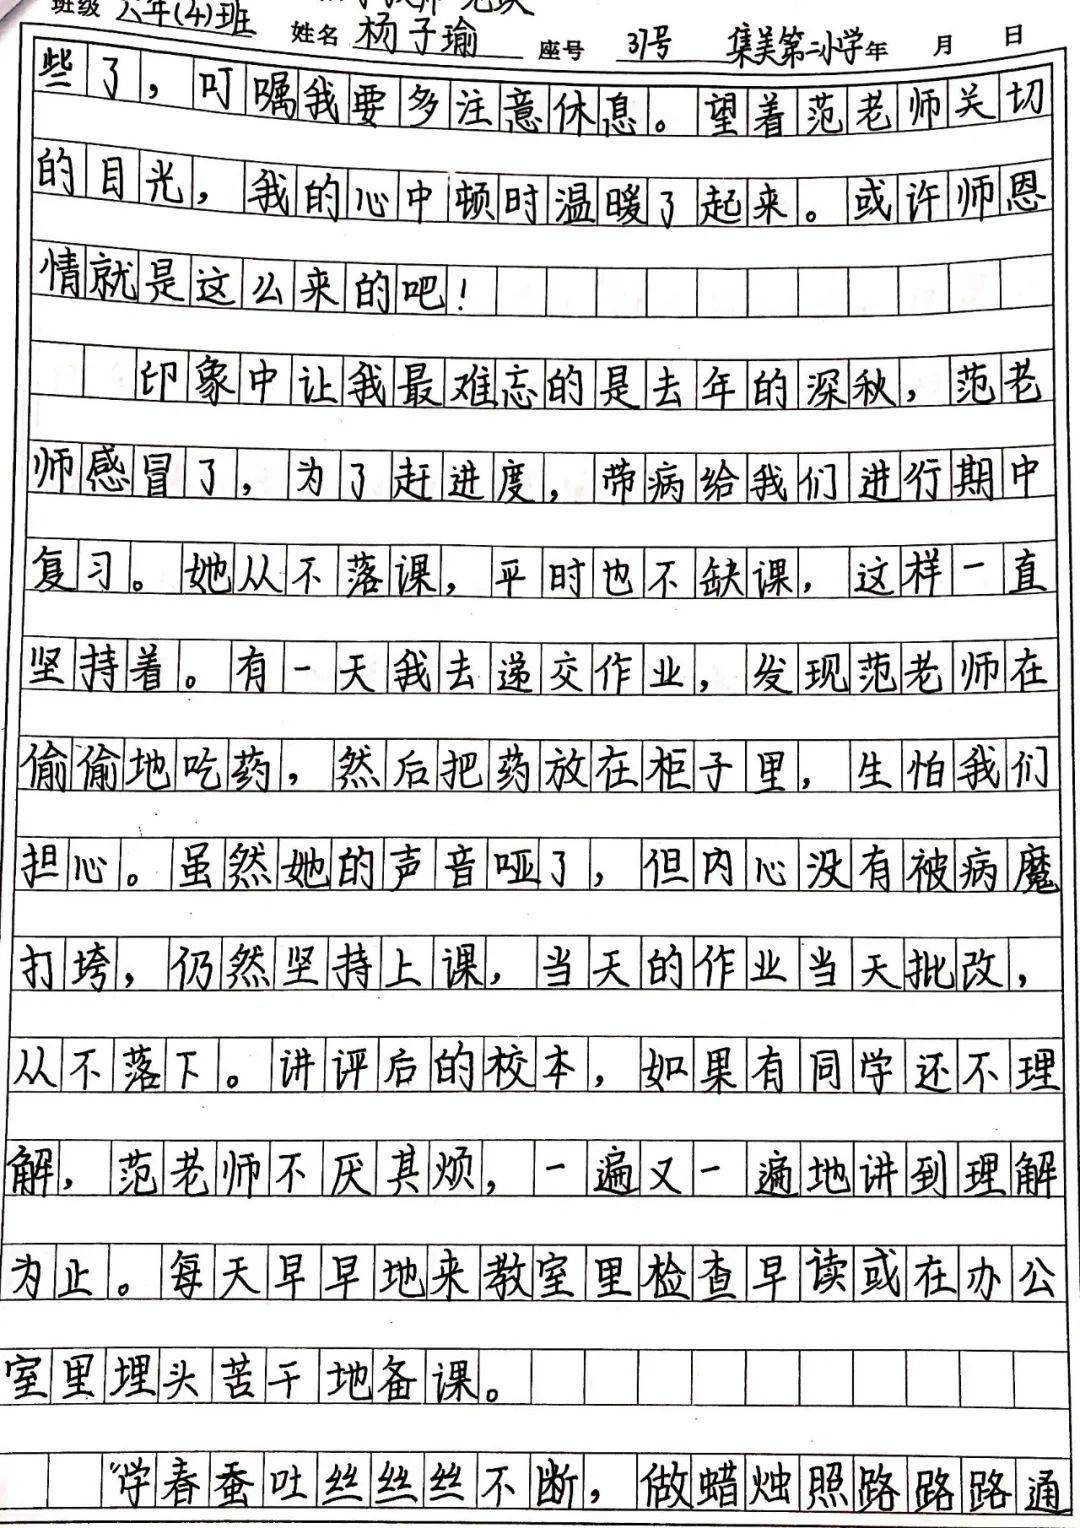 班级 六年(4)班 姓名 杨子瑜 座号 37号 集美第二小学 年 月 日
些了，叮嘱我要多注意休息。望着范老师关切
的目光，我的心中顿时温暖了起来。或许师恩
情就是这么来的吧！
印象中让我最难忘的是去年的深秋，范老
师感冒了，为了赶进度，带病给我们进行期中
复习。她从不落课，平时也不缺课，这样一直
坚持着。有一天我去递交作业，发现范老师在
偷偷地吃药，然后把药放在柜子里，生怕我们
担心。虽然她的声音哑了，但内心没有被病魔
打垮，仍然坚持上课，当天的作业当天批改，
从不落下。讲评后的校本，如果有同学还不理
解，范老师不厌其烦，一遍又一遍地讲到理解
为止。每天早早地来教室里检查早读或在办公
室里埋头苦干地备课。
“学春蚕吐丝丝丝不断，做蜡烛照路路路通